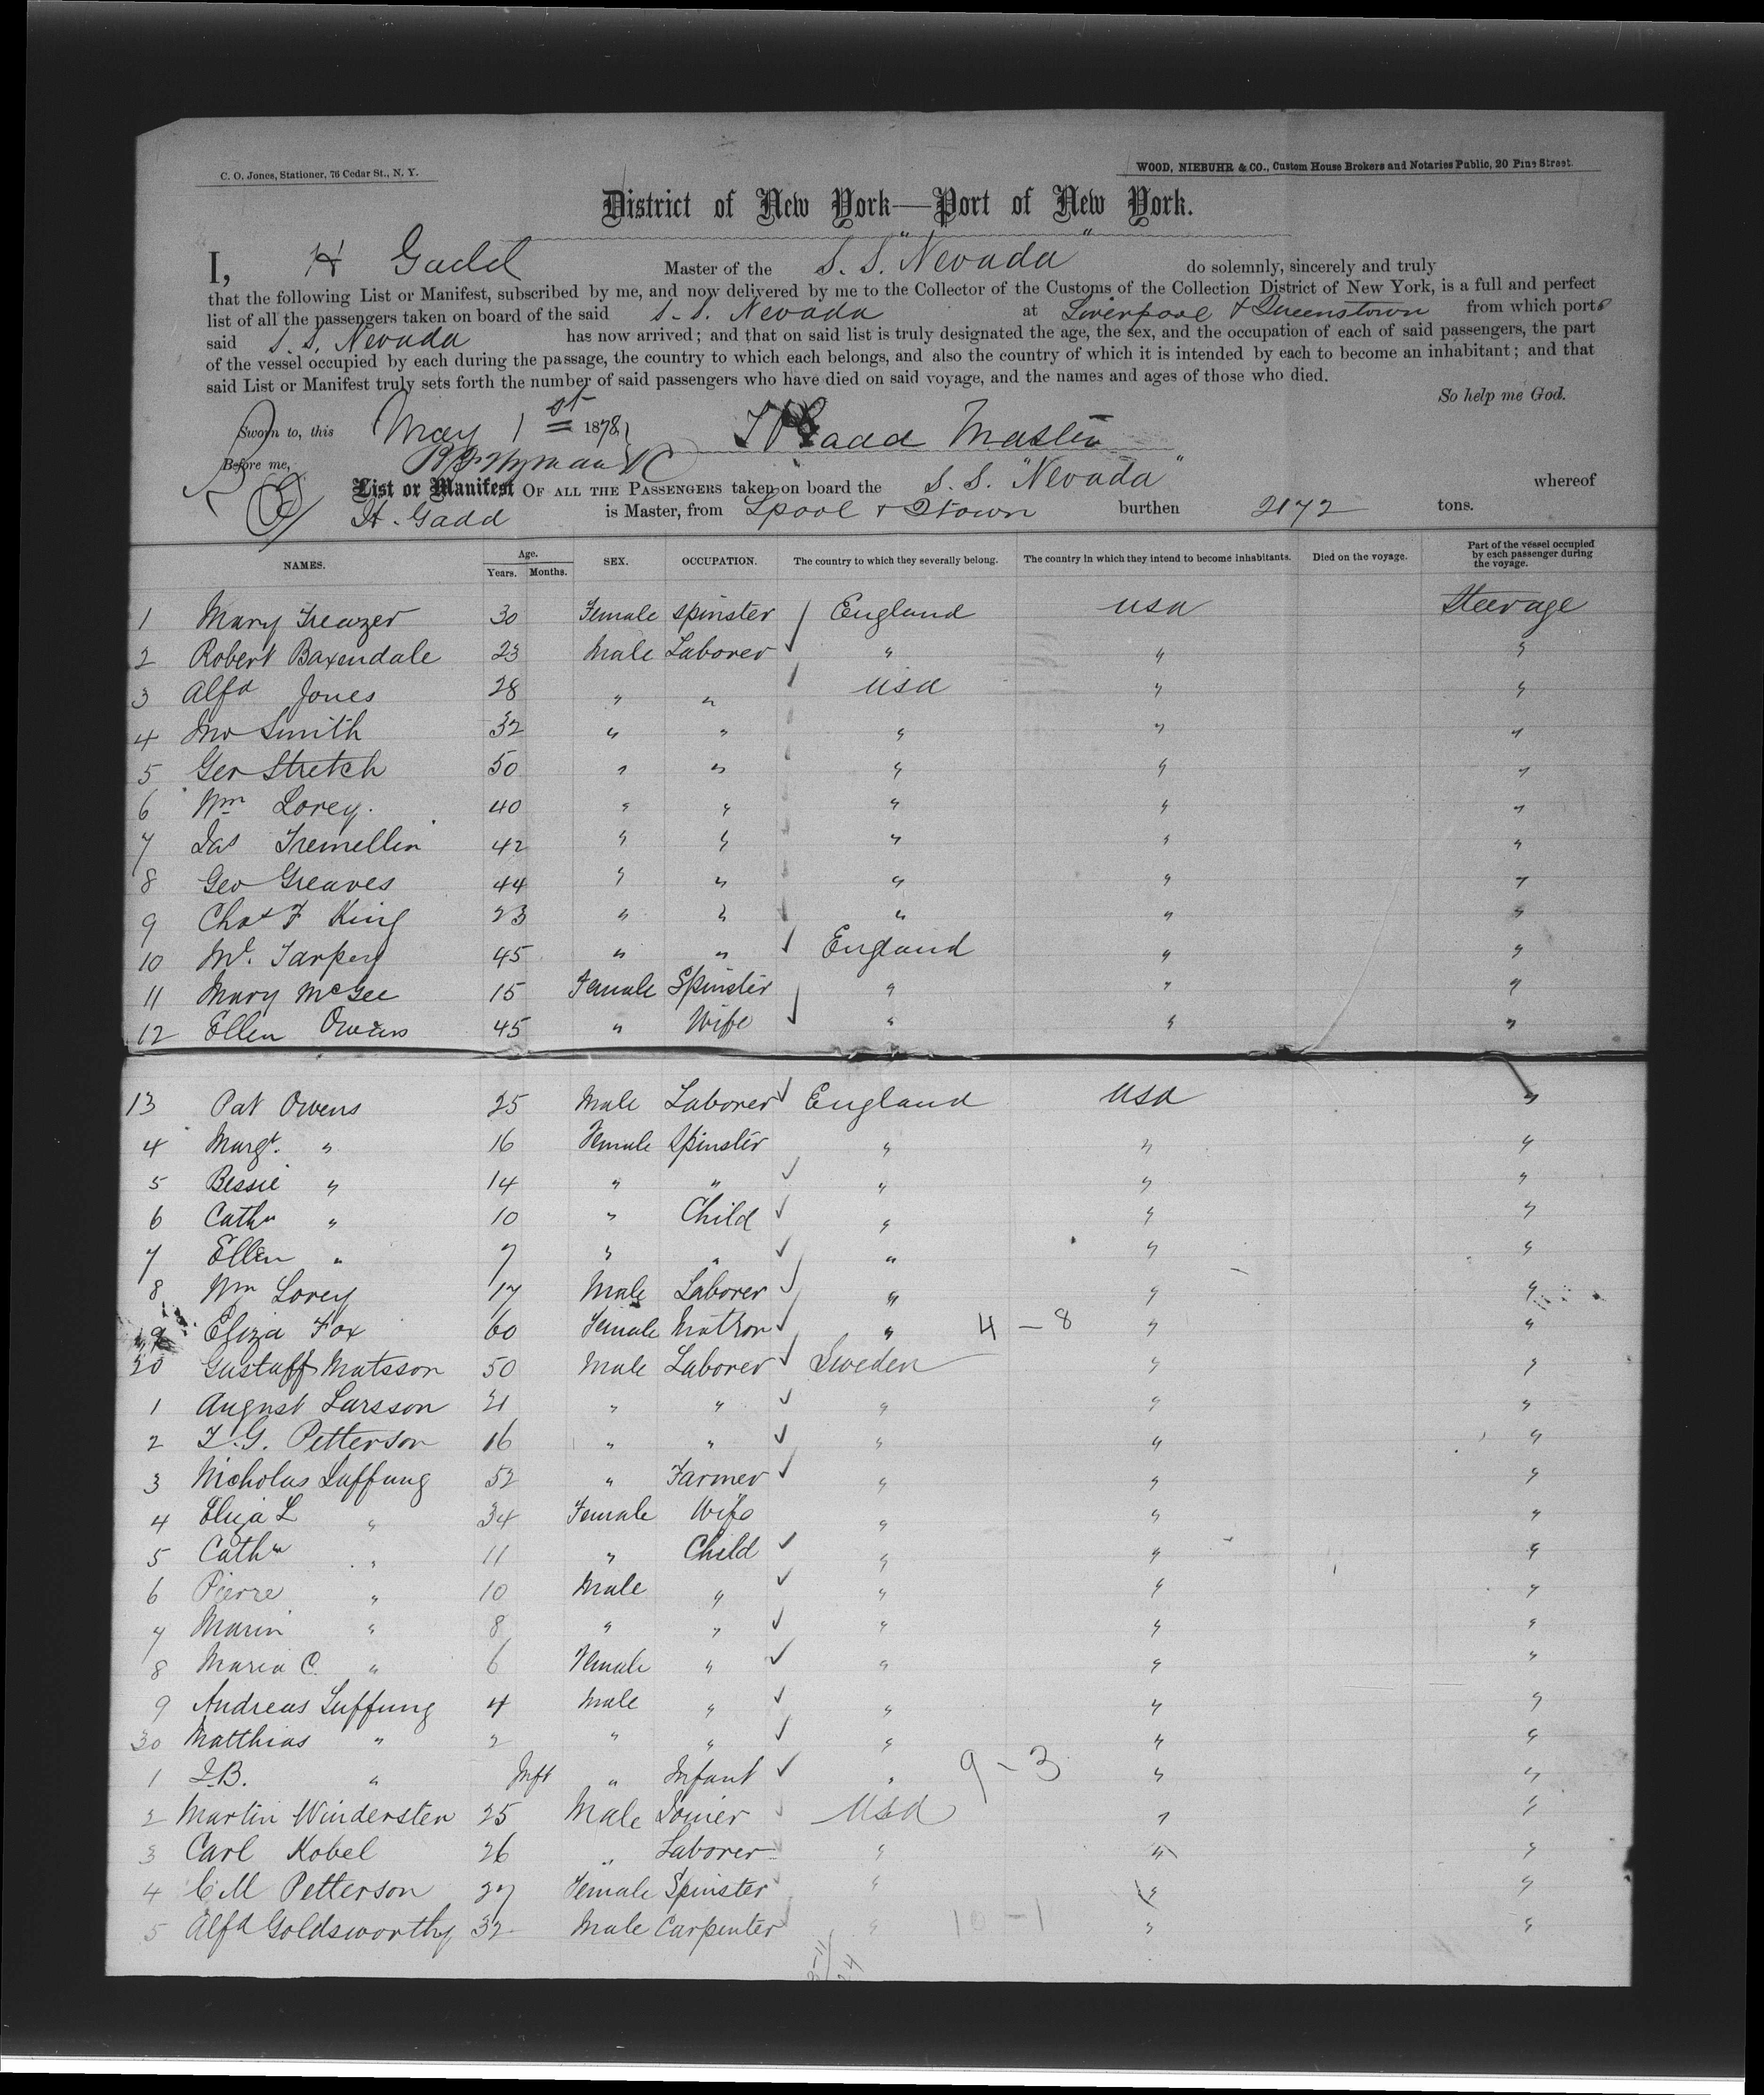 C. O. Jones, Stationer, 76 Cedar St., N. Y.
WOOD, NIEBUHR & CO., Custom House Brokers and Notaries Public, 20 Pine Street.
District of New York—Port of New York.
I, H Gadd Master of the S. S. "Nevada" do solemnly, sincerely and truly
that the following List or Manifest, subscribed by me, and now delivered by me to the Collector of the Customs of the Collection District of New York, is a full and perfect
list of all the passengers taken on board of the said S. S. Nevada at Liverpool & Queenstown from which ports
said S. S. Nevada has now arrived; and that on said list is truly designated the age, the sex, and the occupation of each of said passengers, the part
of the vessel occupied by each during the passage, the country to which each belongs, and also the country of which it is intended by each to become an inhabitant; and that
said List or Manifest truly sets forth the number of said passengers who have died on said voyage, and the names and ages of those who died.
So help me God.
Sworn to, this May 1st 1878 Gadd Master
Before me,
List or Manifest OF ALL THE PASSENGERS taken on board the S. S. "Nevada" whereof
H. Gadd is Master, from Lpool & Qtown burthen 2172 tons.
NAMES. Age. Years. Months. SEX. OCCUPATION. The country to which they severally belong. The country in which they intend to become inhabitants. Died on the voyage. Part of the vessel occupied by each passenger during the voyage.
1 Mary Freazer 30 Female Spinster England USA Steerage
2 Robert Baxendale 23 Male Laborer " " "
3 Alfd Jones 28 " " USA " "
4 Jno Smith 32 " " " " "
5 Geo Stretch 50 " " " " "
6 Wm Lorey 40 " " " " "
7 Jas Tremellin 42 " " " " "
8 Geo Greaves 44 " " " " "
9 Chas F King 23 " " " " "
10 Ml. Tarpey 45 " " England " "
11 Mary McGee 15 Female Spinster " " "
12 Ellen Owens 45 " Wife " " "
13 Pat Owens 25 Male Laborer England USA "
4 Margt. " 16 Female Spinster " " "
5 Bessie " 14 " " " " "
6 Cathn " 10 " Child " " "
7 Ellen " 7 " " " " "
8 Wm Lorey 17 Male Laborer " " "
19 Eliza Fox 60 Female Matron " 4 - 8 " "
20 Gustaff Matsson 50 Male Laborer Sweden " "
1 August Larsson 21 " " " " "
2 L. G. Petterson 16 " " " " "
3 Nicholas Luffung 52 " Farmer " " "
4 Eliza L " 34 Female Wife " " "
5 Cathn " 11 " Child " " "
6 Pierre " 10 Male " " " "
7 Marin " 8 " " " " "
8 Maria C. " 6 Female " " " "
9 Andreas Luffung 4 Male " " " "
30 Matthias " 2 " " " " "
1 J.B. " Inft " Infant " 9 - 3 " "
2 Martin Windersten 25 Male Joiner USA " "
3 Carl Kobel 26 " Laborer " " "
4 C M Petterson 27 Female Spinster " " "
5 Alfd Goldsworthy 32 Male Carpenter " 10 - 1 " "